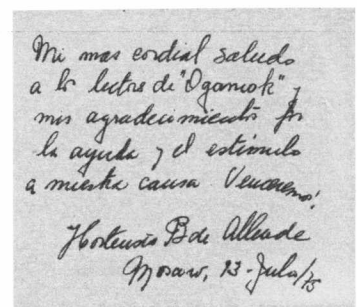 Mi mas cordial saludo
a los lectores de "Ogoniok" y
mis agradecimientos por
la ayuda y el estímulo
a nuestra causa Venceremos!
Hortensia B de Allende
Moscu, 13-Julio/75